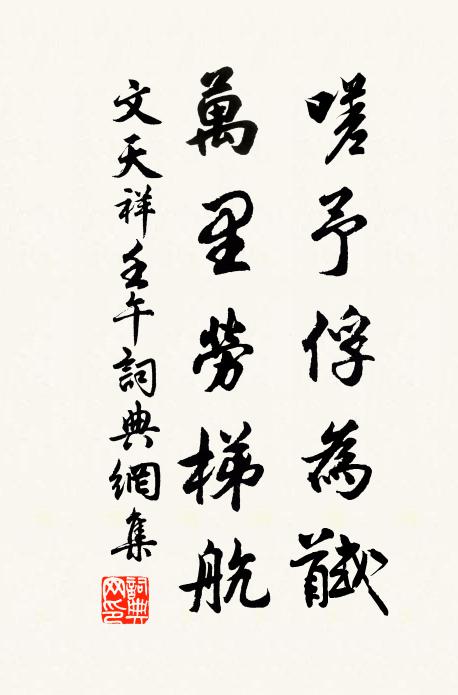 嗟予俘為馘
萬里勞梯航
文天祥壬午詞典網集
詞典網印